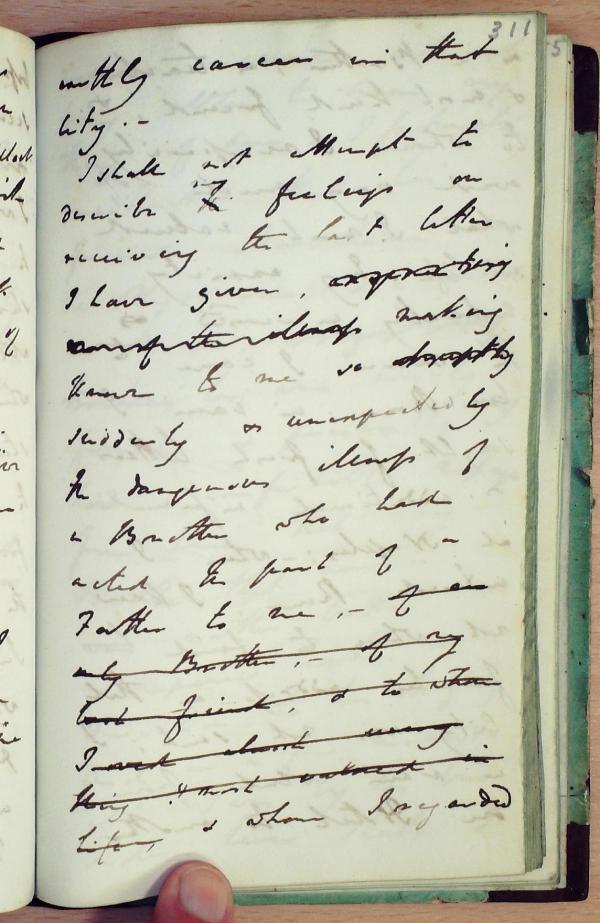 311
earthly career in that
city. -
I shall not attempt to
describe my feelings on
receiving the last letter
I have given, respecting
illness making
known to me so abruptly
suddenly & unexpectedly
the dangerous illness of
a Brother who had
acted the part of a
Father to me, - of an
only Brother, - of my
best friend, & to whom
I owed almost every
thing I most valued in
life, & whom I regarded